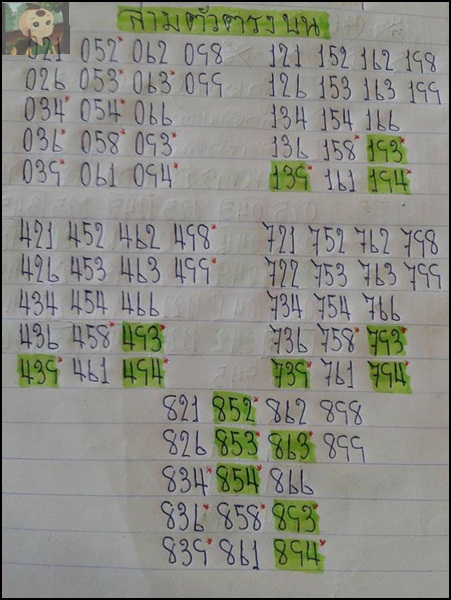 สามตัวตรงบน
021 052* 062 098 121 152 162 198
026 053* 063* 099 126 153 163 199
034* 054* 066 134 154 166
036* 058* 093* 136 158* 193*
039* 061 094* 139* 161 194*
421 452 462 498* 721 752 762 798
426 453 463 499* 722 753 763 799
434 454 466 734 754 766
436 458* 493* 736 758* 793*
439* 461 494* 739* 761 794*
821 852* 862 898
826 853* 863* 899
834* 854* 866
836* 858* 893*
839* 861 894*